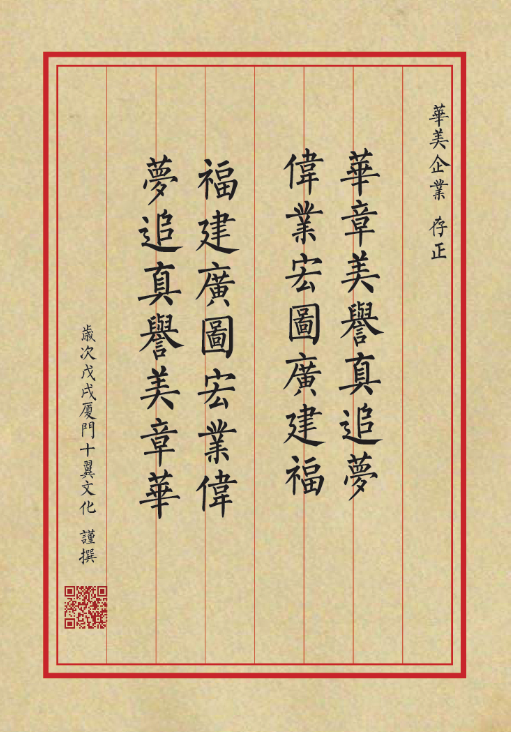 華美企業 存正
華章美譽真追夢
偉業宏圖廣建福
福建廣圖宏業偉
夢追真譽美章華
歲次戊戌廈門十翼文化 謹撰